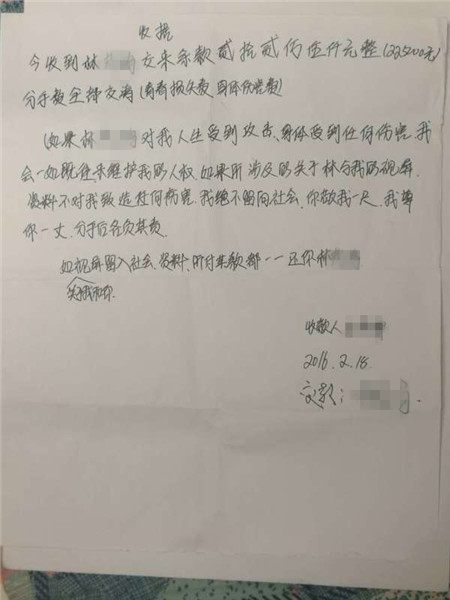 收据
今收到林 女来余款贰拾贰万伍仟元整(225000元)
分手费全部交清(青春损失费 身体伤害费)
(如果林 对我人生受到攻击、身体受到任何伤害,我
会一如既往来维护我的人权,如果所涉及的关于林与我的视屏
资料不对我致造任何伤害,我绝不留向社会,你敬我一尺,我尊
你一丈,分手后各负其责,
如视屏留入社会、资料、所付来款都一一还你林
关于我和你
收款人
2016.2.18.
交款: